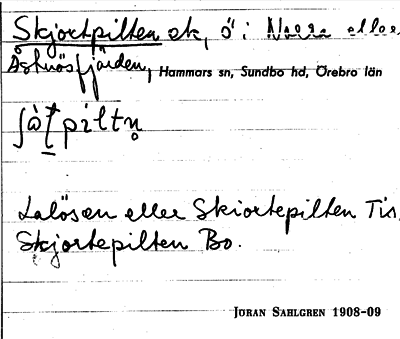 Skjortpilten ek, ö i Norra eller
Åsknösfjärden, Hammars sn, Sundbo hd, Örebro län
Lalösen eller Skiortepilten Tis.
Skjortepilten Bo.
JÖRAN SAHLGREN 1908-09